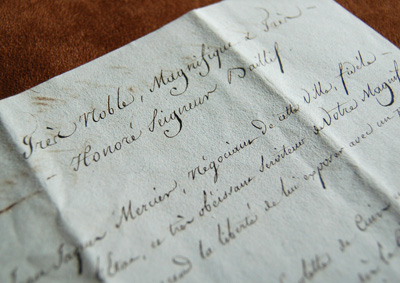 Très Noble, Magnifique & Très-
- Honoré Seigneur Baillif.
Jean Jaques Mercier, Négociant de cette Ville, fidèle-
et très obéissant Serviteur de Votre Magnif
prend la liberté de lui exposer avec un
de Cuir